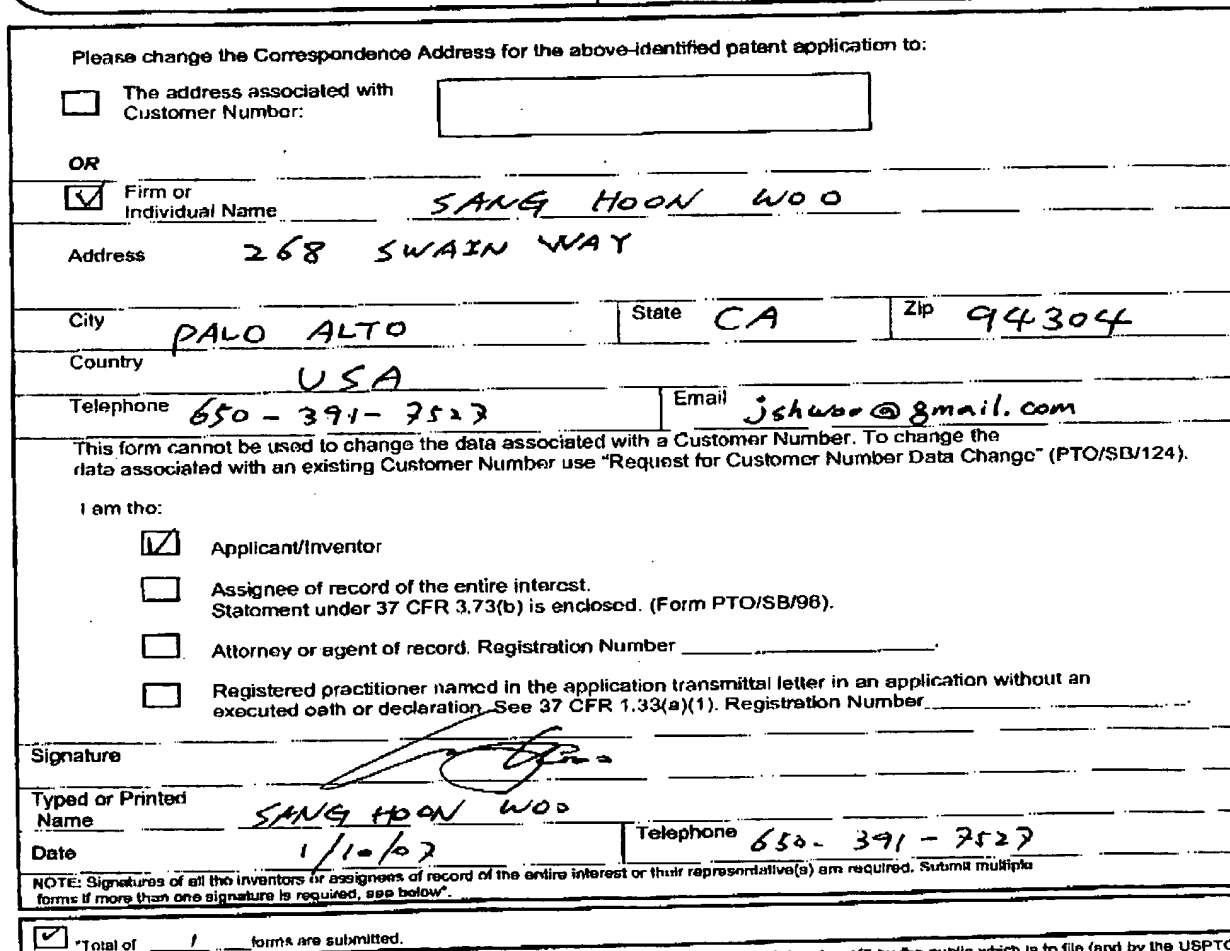 Please change the Correspondence Address for the above-identified patent application to:
The address associated with
Customer Number:
OR
Firm or
Individual Name SANG HOON WOO
Address 268 SWAIN WAY
City PALO ALTO State CA Zip 94304
Country USA
Telephone 650-391-7527 Email jshwoo@gmail.com
This form cannot be used to change the data associated with a Customer Number. To change the
data associated with an existing Customer Number use "Request for Customer Number Data Change" (PTO/SB/124).
I am the:
Applicant/Inventor
Assignee of record of the entire interest.
Statement under 37 CFR 3.73(b) is enclosed. (Form PTO/SB/96).
Attorney or agent of record. Registration Number
Registered practitioner named in the application transmittal letter in an application without an
executed oath or declaration. See 37 CFR 1.33(a)(1). Registration Number
Signature
Typed or Printed
Name SANG HOON WOO
Date 1/10/07 Telephone 650-391-7527
NOTE: Signatures of all the inventors or assignees of record of the entire interest or their representative(s) are required. Submit multiple
forms if more than one signature is required, see below*.
*Total of 1 forms are submitted.
by the public which is to file (and by the USPTO